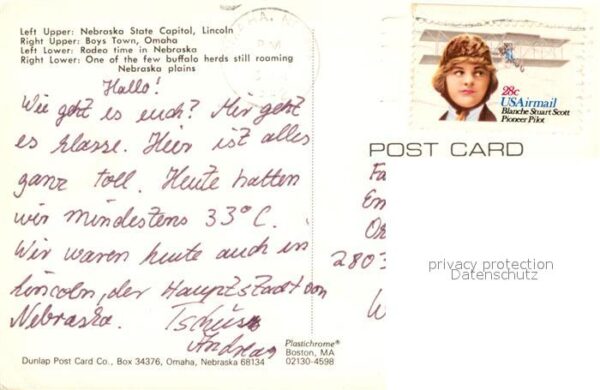 Left Upper: Nebraska State Capitol, Lincoln
Right Upper: Boys Town, Omaha
Left Lower: Rodeo time in Nebraska
Right Lower: One of the few buffalo herds still roaming
Nebraska plains
Hallo!
Wie geht es euch? Mir geht
es klasse. Hier ist alles
ganz toll. Heute hatten
wir mindestens 33°C.
Wir waren heute auch in
Lincoln, der Hauptstadt von
Nebraska. Tschüss
Andreas
Dunlap Post Card Co., Box 34376, Omaha, Nebraska 68134
Plastichrome®
Boston, MA
02130-4598
28c
USAirmail
Blanche Stuart Scott
Pioneer Pilot
POST CARD
Fa
Em
Or
2803
W
privacy protection
Datenschutz